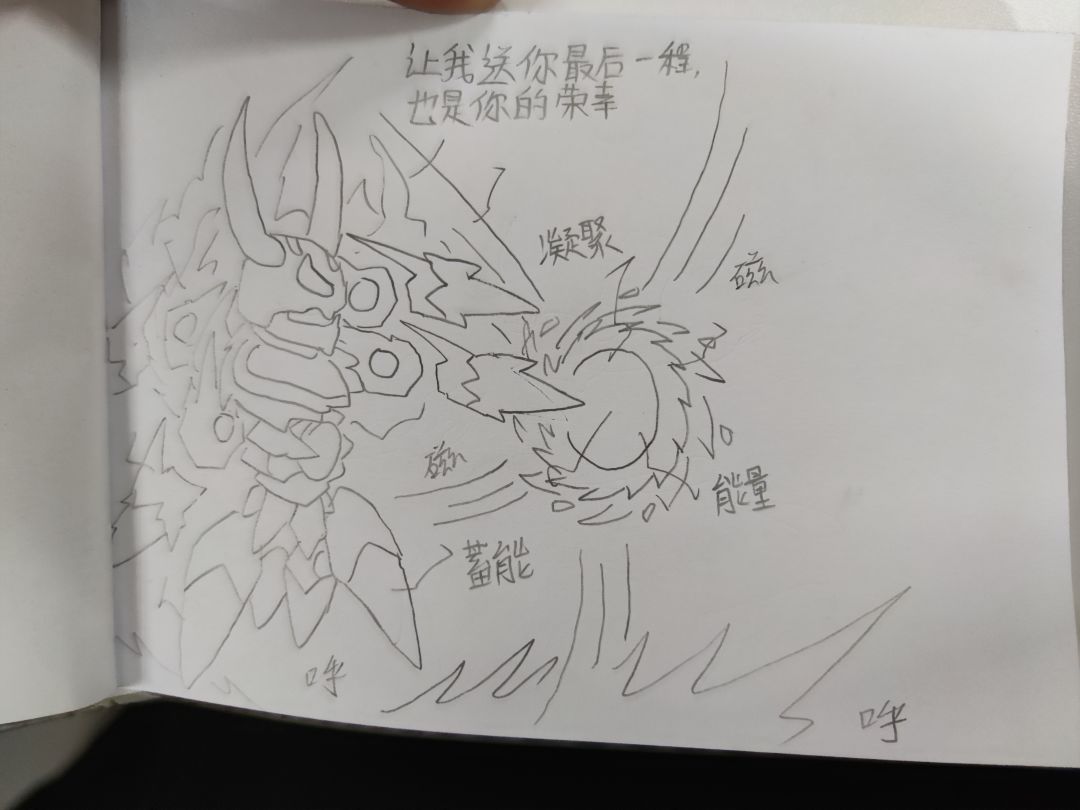 让我送你最后一程，
也是你的荣幸
凝聚
磁
磁
能量
蓄能
呼
呼